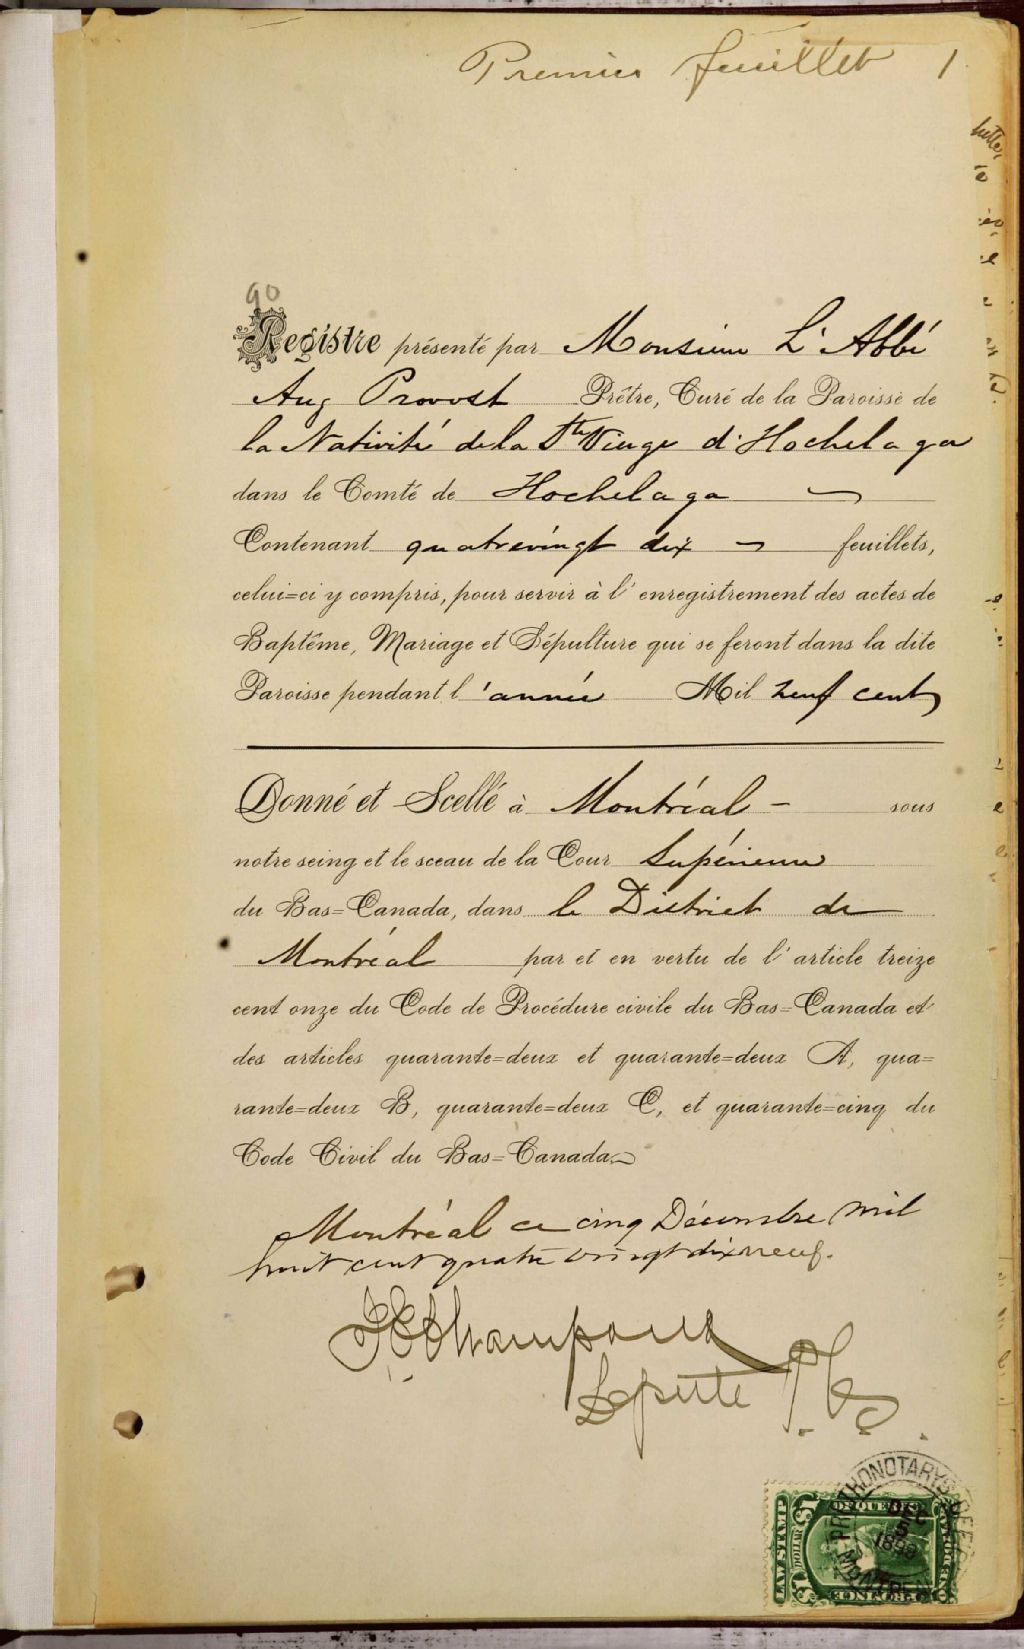 Premier feuillet 1
90
Registre présenté par Monsieur L'Abbé
Aug Provost Prêtre, Curé de la Paroisse de
la Nativité de la Ste Vierge d'Hochelaga
dans le Comté de Hochelaga
Contenant quatrevingt dix feuillets,
celui=ci y compris, pour servir à l'enregistrement des actes de
Baptême, Mariage et Sépulture qui se feront dans la dite
Paroisse pendant l'année Mil neuf cent
Donné et Scellé à Montréal - sous
notre seing et le sceau de la Cour Supérieure
du Bas=Canada, dans le District de
Montréal par et en vertu de l'article treize
cent onze du Code de Procédure civile du Bas=Canada et
des articles quarante=deux et quarante=deux A, qua=
rante=deux B, quarante=deux C, et quarante=cinq du
Code Civil du Bas=Canada
Montréal ce cinq Décembre mil
huit cent quatre vingt dix neuf.
Champoux
Députe P.
LAW STAMP
DOLLAR
OF QUEBEC
PROTHONOTARY'S
DEC
5
MONTREAL